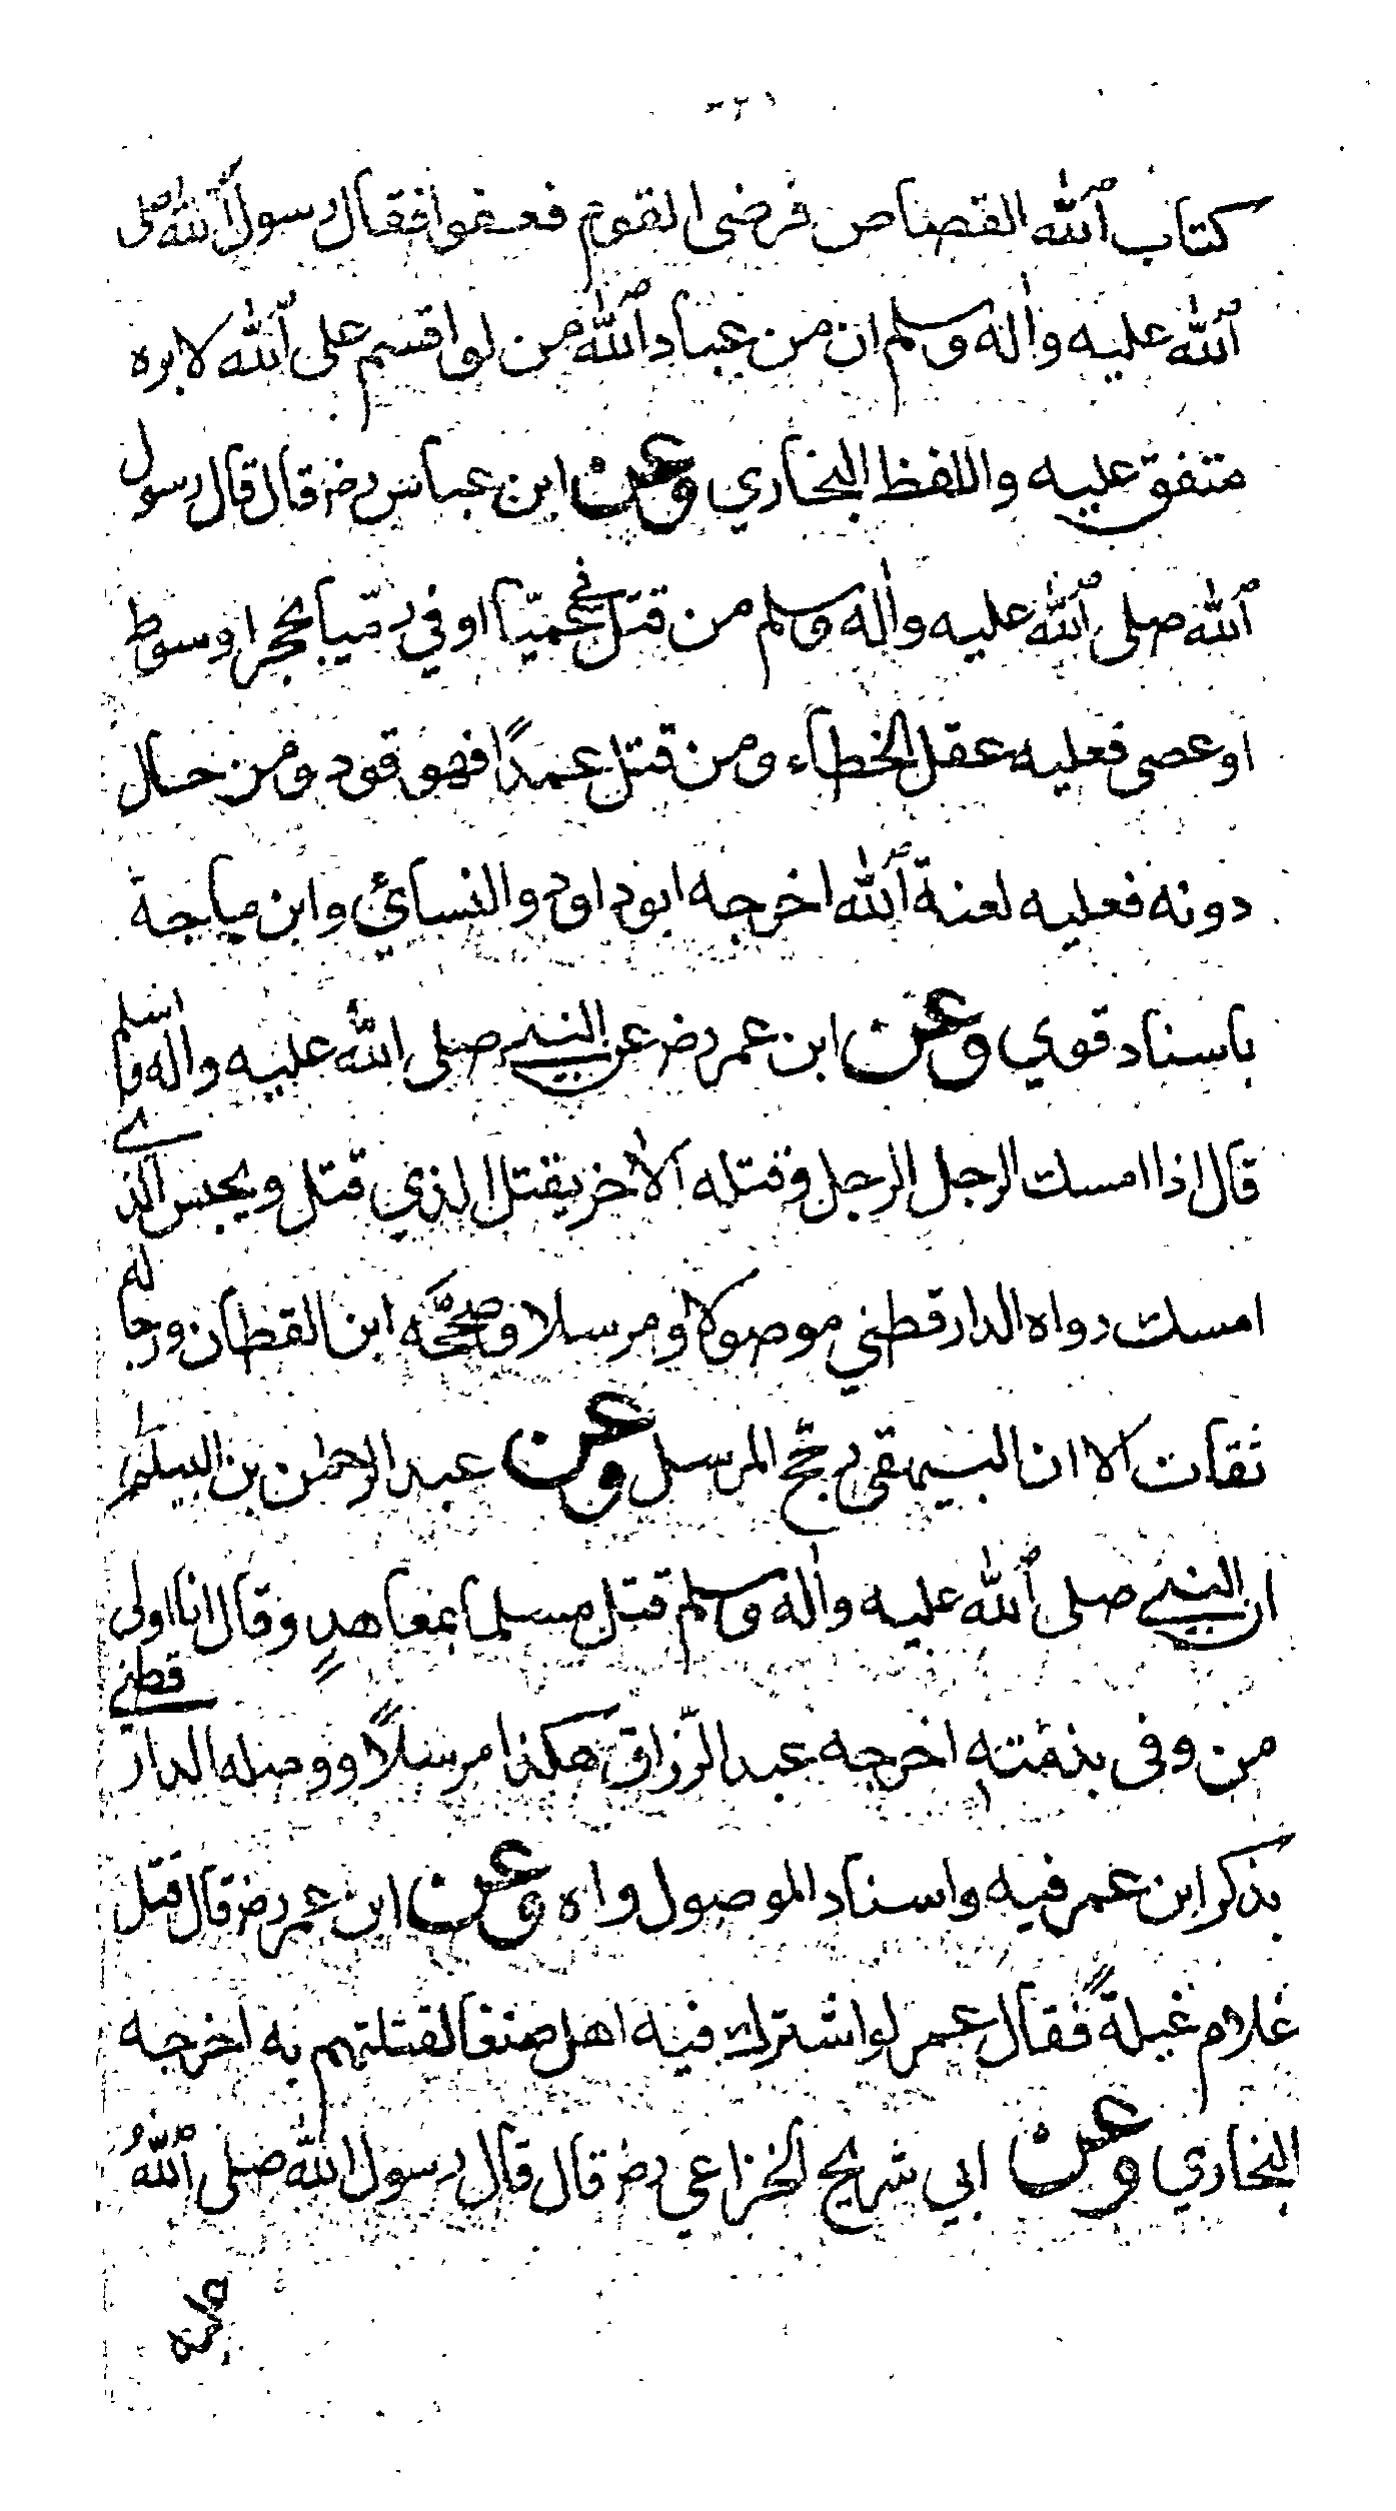 كتاب الله القصاص فرضى القوم فعفوا فقال رسول الله صلى
الله عليه واله وسلم ان من عباد الله من لو اقسم على الله لابره
متفق عليه واللفظ البخاري وعن ابن عباس رض قال قال رسول
الله صلى الله عليه واله وسلم من قتل في عميّا او في رميّا بحجر او سوط
او عصى فعليه عقل الخطاء ومن قتل عمدًا فهو قود ومن حال
دونه فعليه لعنة الله اخرجه ابو داود والنسائي وابن ماجة
باسناد قوي وعن ابن عمر رض عن النبي صلى الله عليه واله وسلم
قال اذا امسك الرجل الرجل وقتله الاخر يقتل الذي قتل ويحبس الذي
امسك رواه الدارقطني موصولا ومرسلا وصححه ابن القطان ورجاله
ثقات الا ان البيهقى رجّح المرسل وعن عبد الرحمن بن
ان النبي صلى الله عليه واله وسلم قتل مسلما بمعاهدٍ وقال انا اولى
من وفى بذمته اخرجه عبد الرّزاق هكذا مرسلاً ووصله الدارقطني
بذكر ابن عمر فيه واسناد الموصول واه وعن ابن عمر رض قال قتل
غلام غيلةً فقال عمر لو اشترك فيه اهل صنعا لقتلتهم به اخرجه
البخاري وعن ابي شريح الخزاعي رض قال قال رسول الله صلى الله